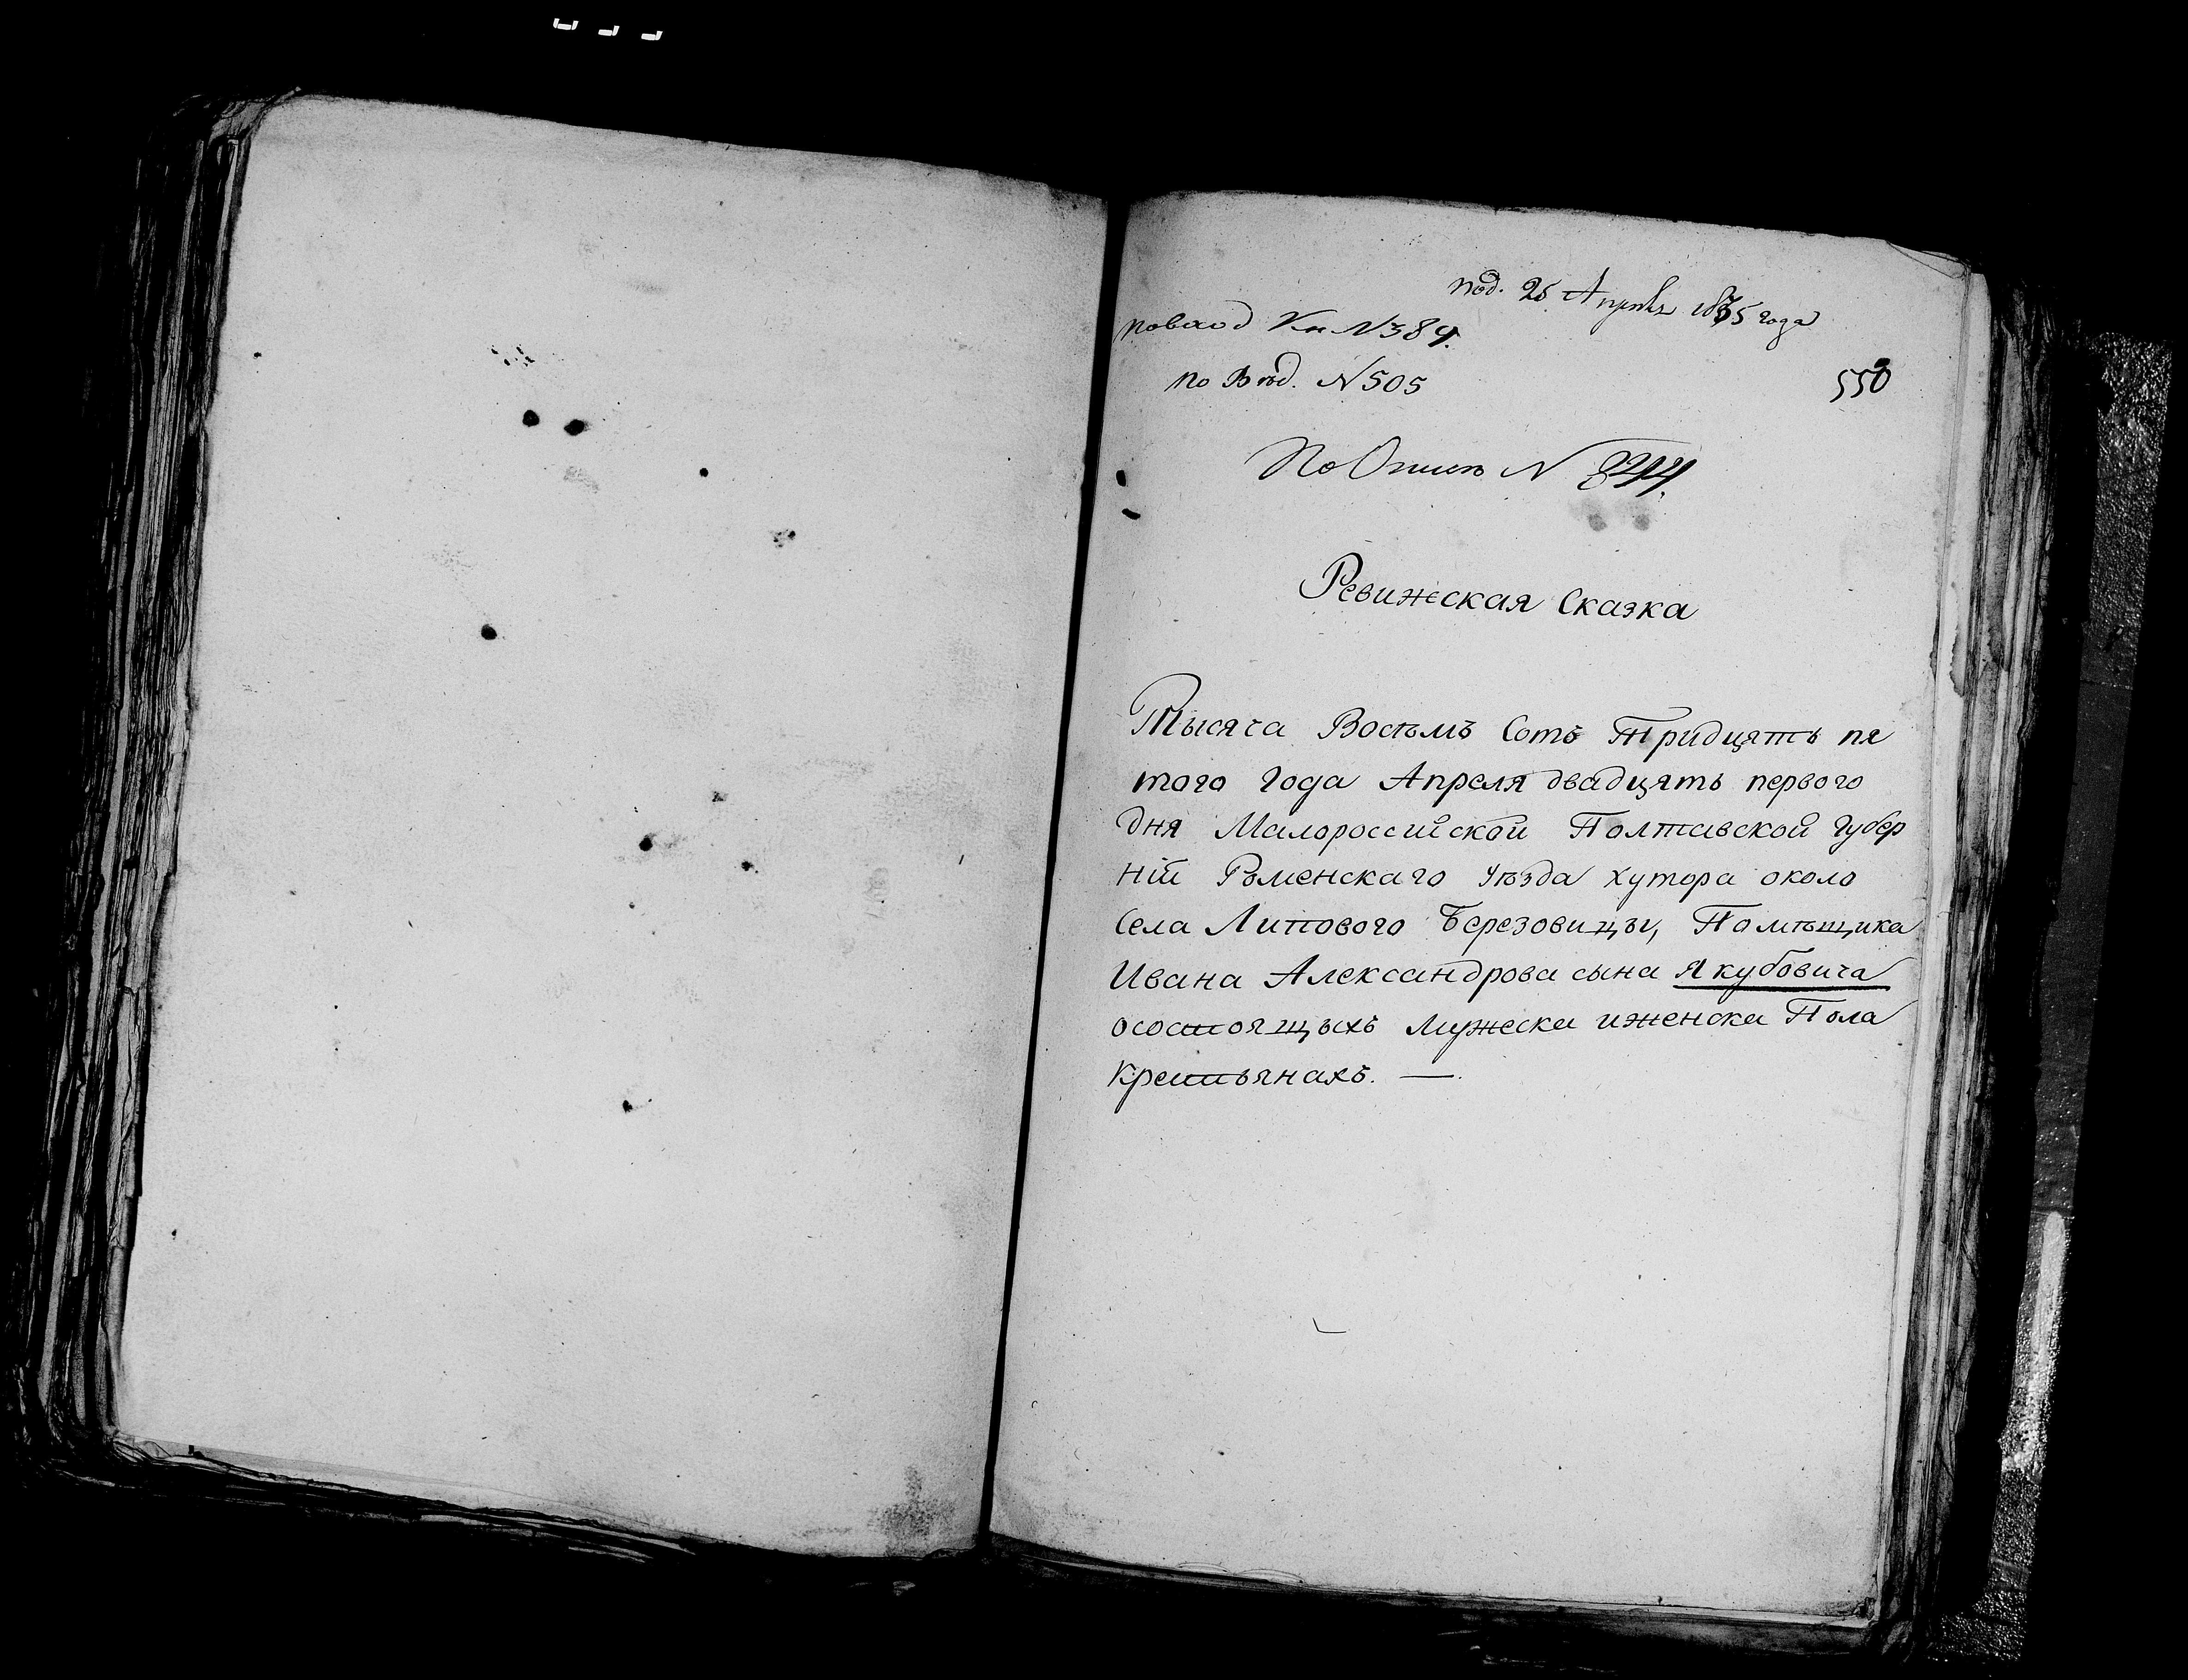 под. 25 Апреля 1835 года
по вход Кн N 389.
по Вѣд. N 505
550
По Описи N
Ревижская Сказка
Тысяча Восѣмъ Сотъ Тридцять пя
того года Апреля двадцять первого
дня Малороссийской Полтавской губер
ній Роменскаго уѣзда хутора около
Села Липового Березовицы, Помѣщика
Ивана Александрова сына Якубовича
осостоящыхъ мужеска иженска Пола
Крестьянахъ. —